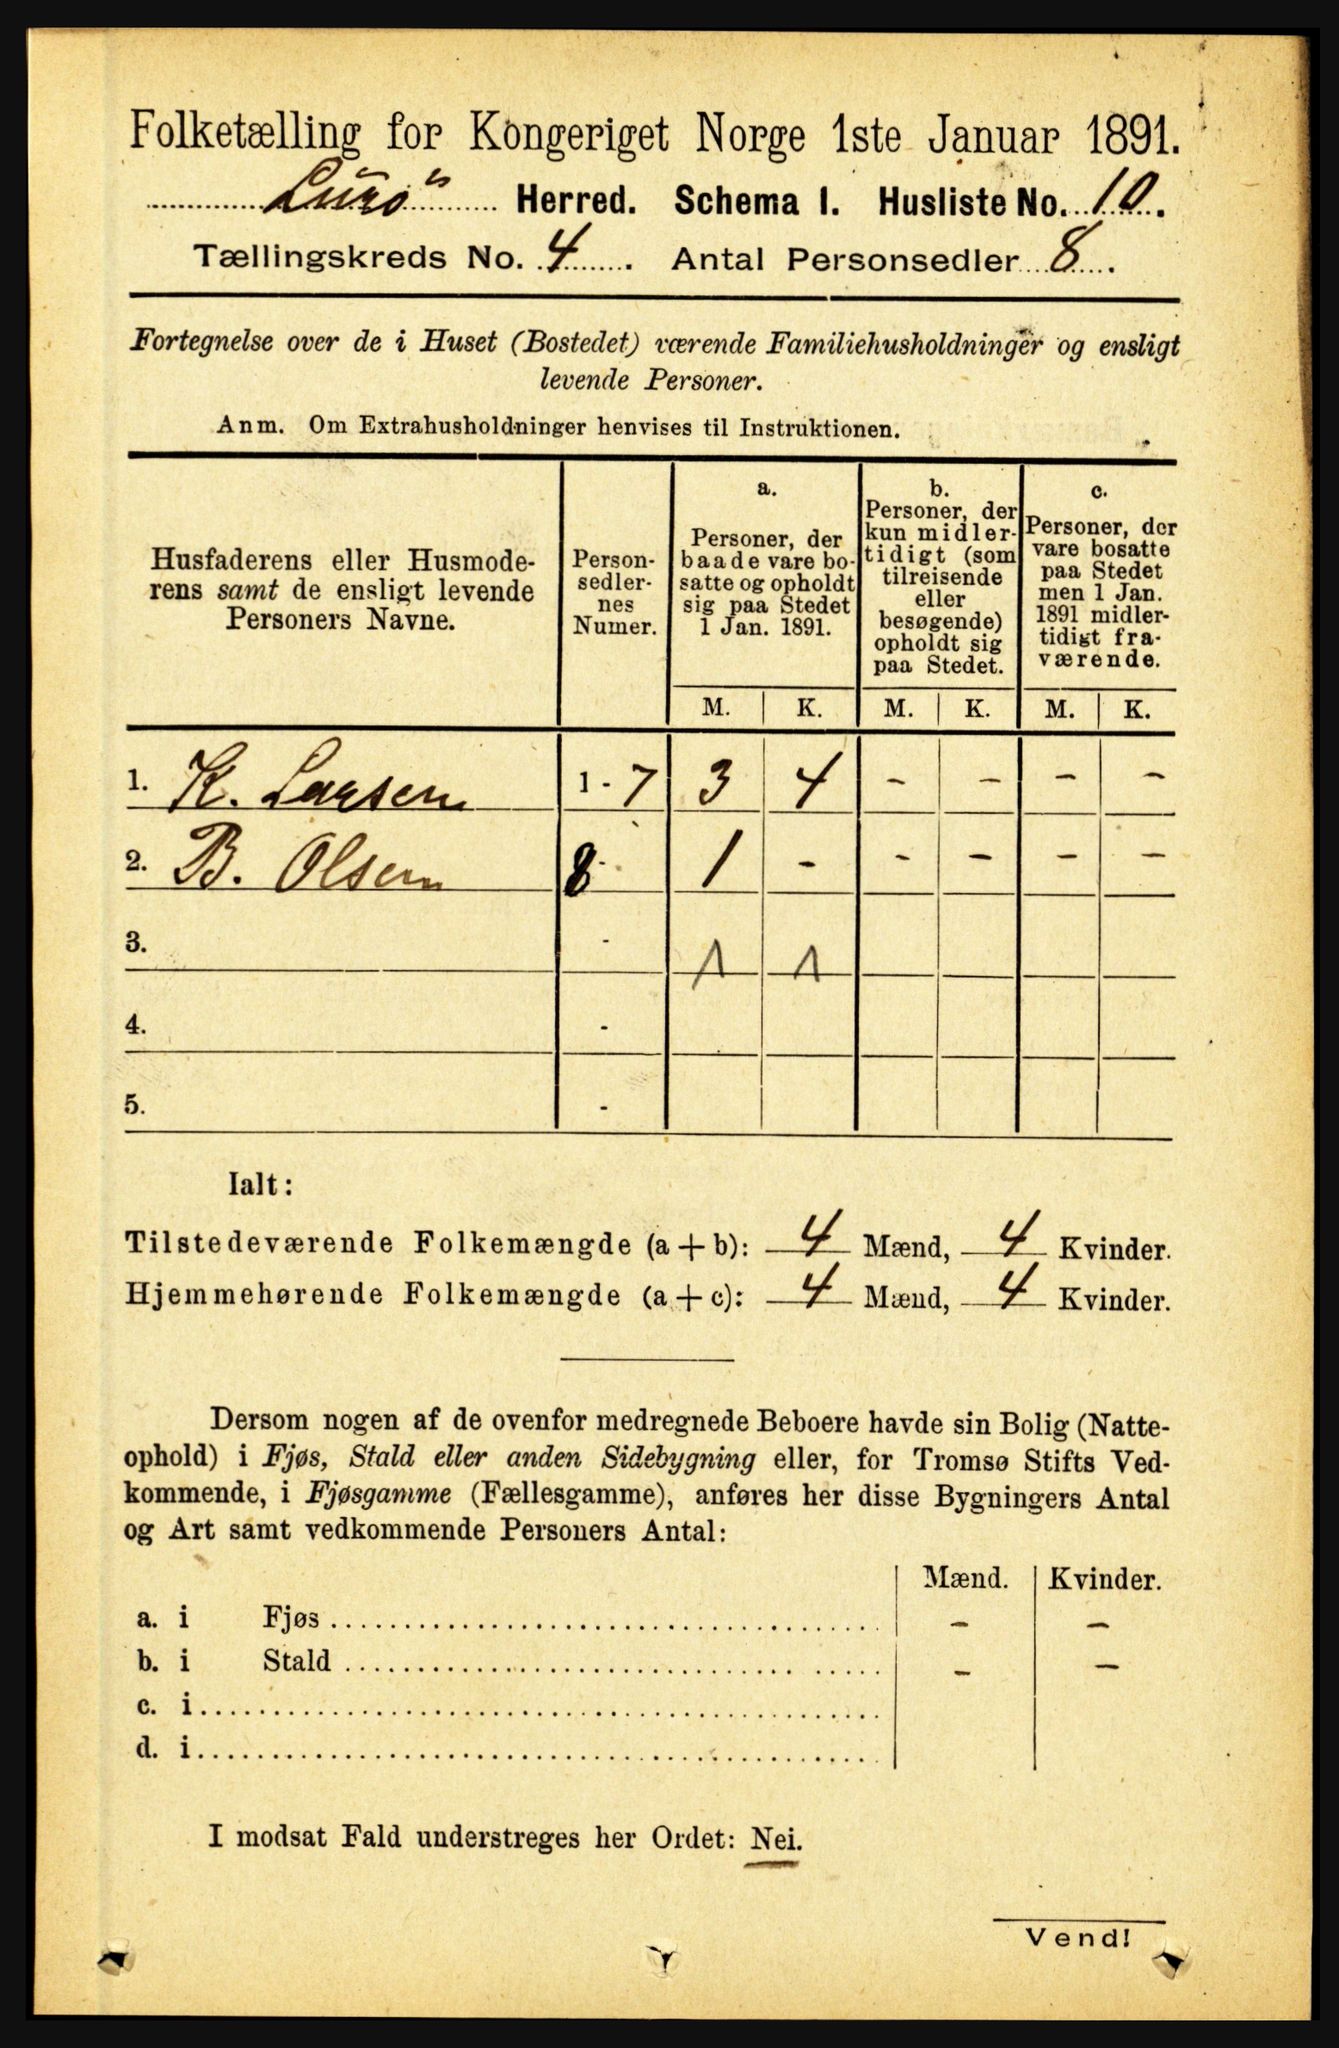 Folketælling for Kongeriget Norge 1ste Januar 1891.
Lurö Herred. Schema I. Husliste No. 10.
Tællingskreds No. 4. Antal Personsedler 8.
Fortegnelse over de i Huset (Bostedet) værende Familiehusholdninger og ensligt
levende Personer.
Anm. Om Extrahusholdninger henvises til Instruktionen.
Husfaderens eller Husmode-
rens samt de ensligt levende
Personers Navne.
Person-
sedler-
nes
Numer.
a.
Personer, der
baade vare bo-
satte og opholdt
sig paa Stedet
1 Jan. 1891.
b.
Personer, der
kun midler-
tidigt (som
tilreisende
eller
besøgende)
opholdt sig
paa Stedet.
c.
Personer, der
vare bosatte
paa Stedet
men 1 Jan.
1891 midler-
tidigt fra-
værende.
M. K. M. K. M. K.
1. K. Larsen 1 - 7 3 4 - - - -
2. B. Olsen 8 - 1 - - - - -
3. - 1 1
4. -
5. -
Ialt:
Tilstedeværende Folkemængde (a + b): 4 Mænd, 4 Kvinder.
Hjemmehørende Folkemængde (a + c): 4 Mænd, 4 Kvinder.
Dersom nogen af de ovenfor medregnede Beboere havde sin Bolig (Natte-
ophold) i Fjøs, Stald eller anden Sidebygning eller, for Tromsø Stifts Ved-
kommende, i Fjøsgamme (Fællesgamme), anføres her disse Bygningers Antal
og Art samt vedkommende Personers Antal:
Mænd. Kvinder.
a. i Fjøs - -
b. i Stald - -
c. i
d. i
I modsat Fald understreges her Ordet: Nei.
Vend!